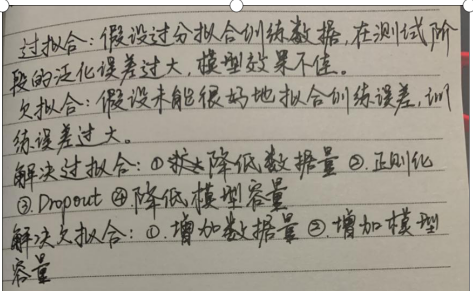 过拟合：假设过分拟合训练数据，在测试阶
段的泛化误差过大，模型效果不佳。
欠拟合：假设未能很好地拟合训练误差，训
练误差过大。
解决过拟合：①降低数据量 ②.正则化
③.Dropout ④降低模型容量
解决欠拟合：①.增加数据量 ②.增加模型
容量